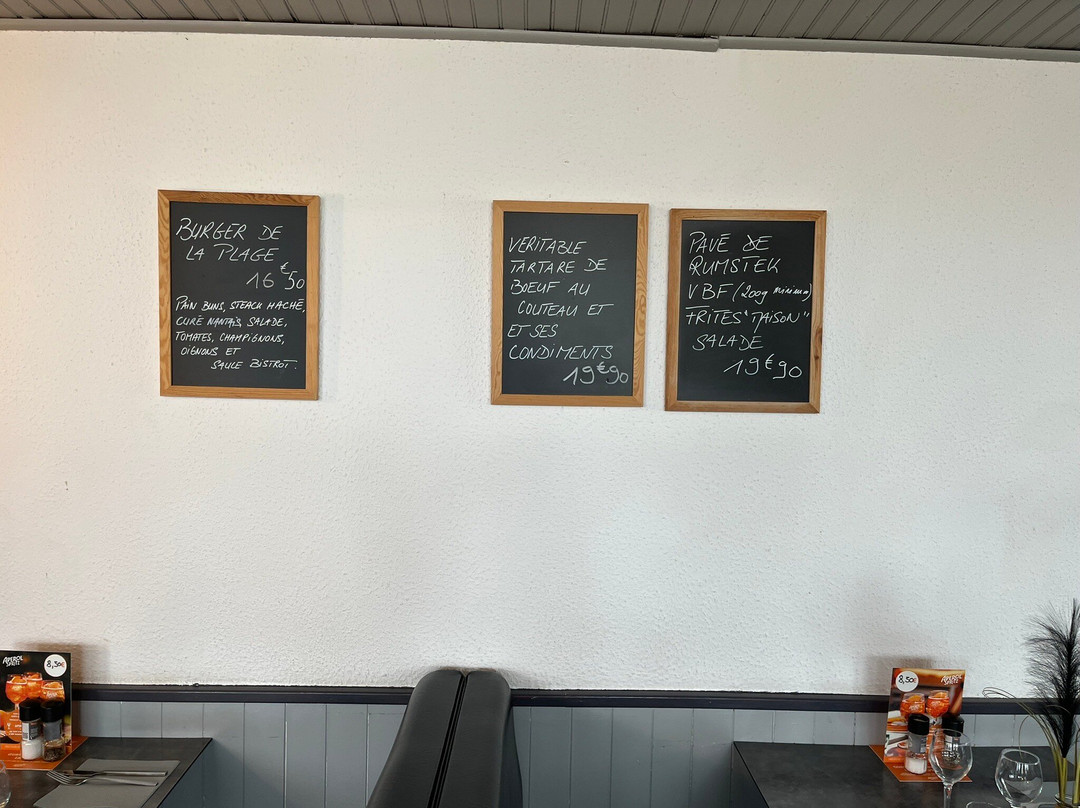 BURGER DE
LA PLAGE
16€50
PAIN BUNS, STEACK HACHÉ,
CURÉ NANTAIS SALADE,
TOMATES, CHAMPIGNONS,
OIGNONS ET
SAUCE BISTROT.
VERITABLE
TARTARE DE
BOEUF AU
COUTEAU ET
ET SES
CONDIMENTS
19€90
PAVÉ DE
RUMSTEK
VBF (200g minimum)
FRITES "MAISON"
SALADE
19€90
APEROL
SPRITZ
8,50€
8,50€